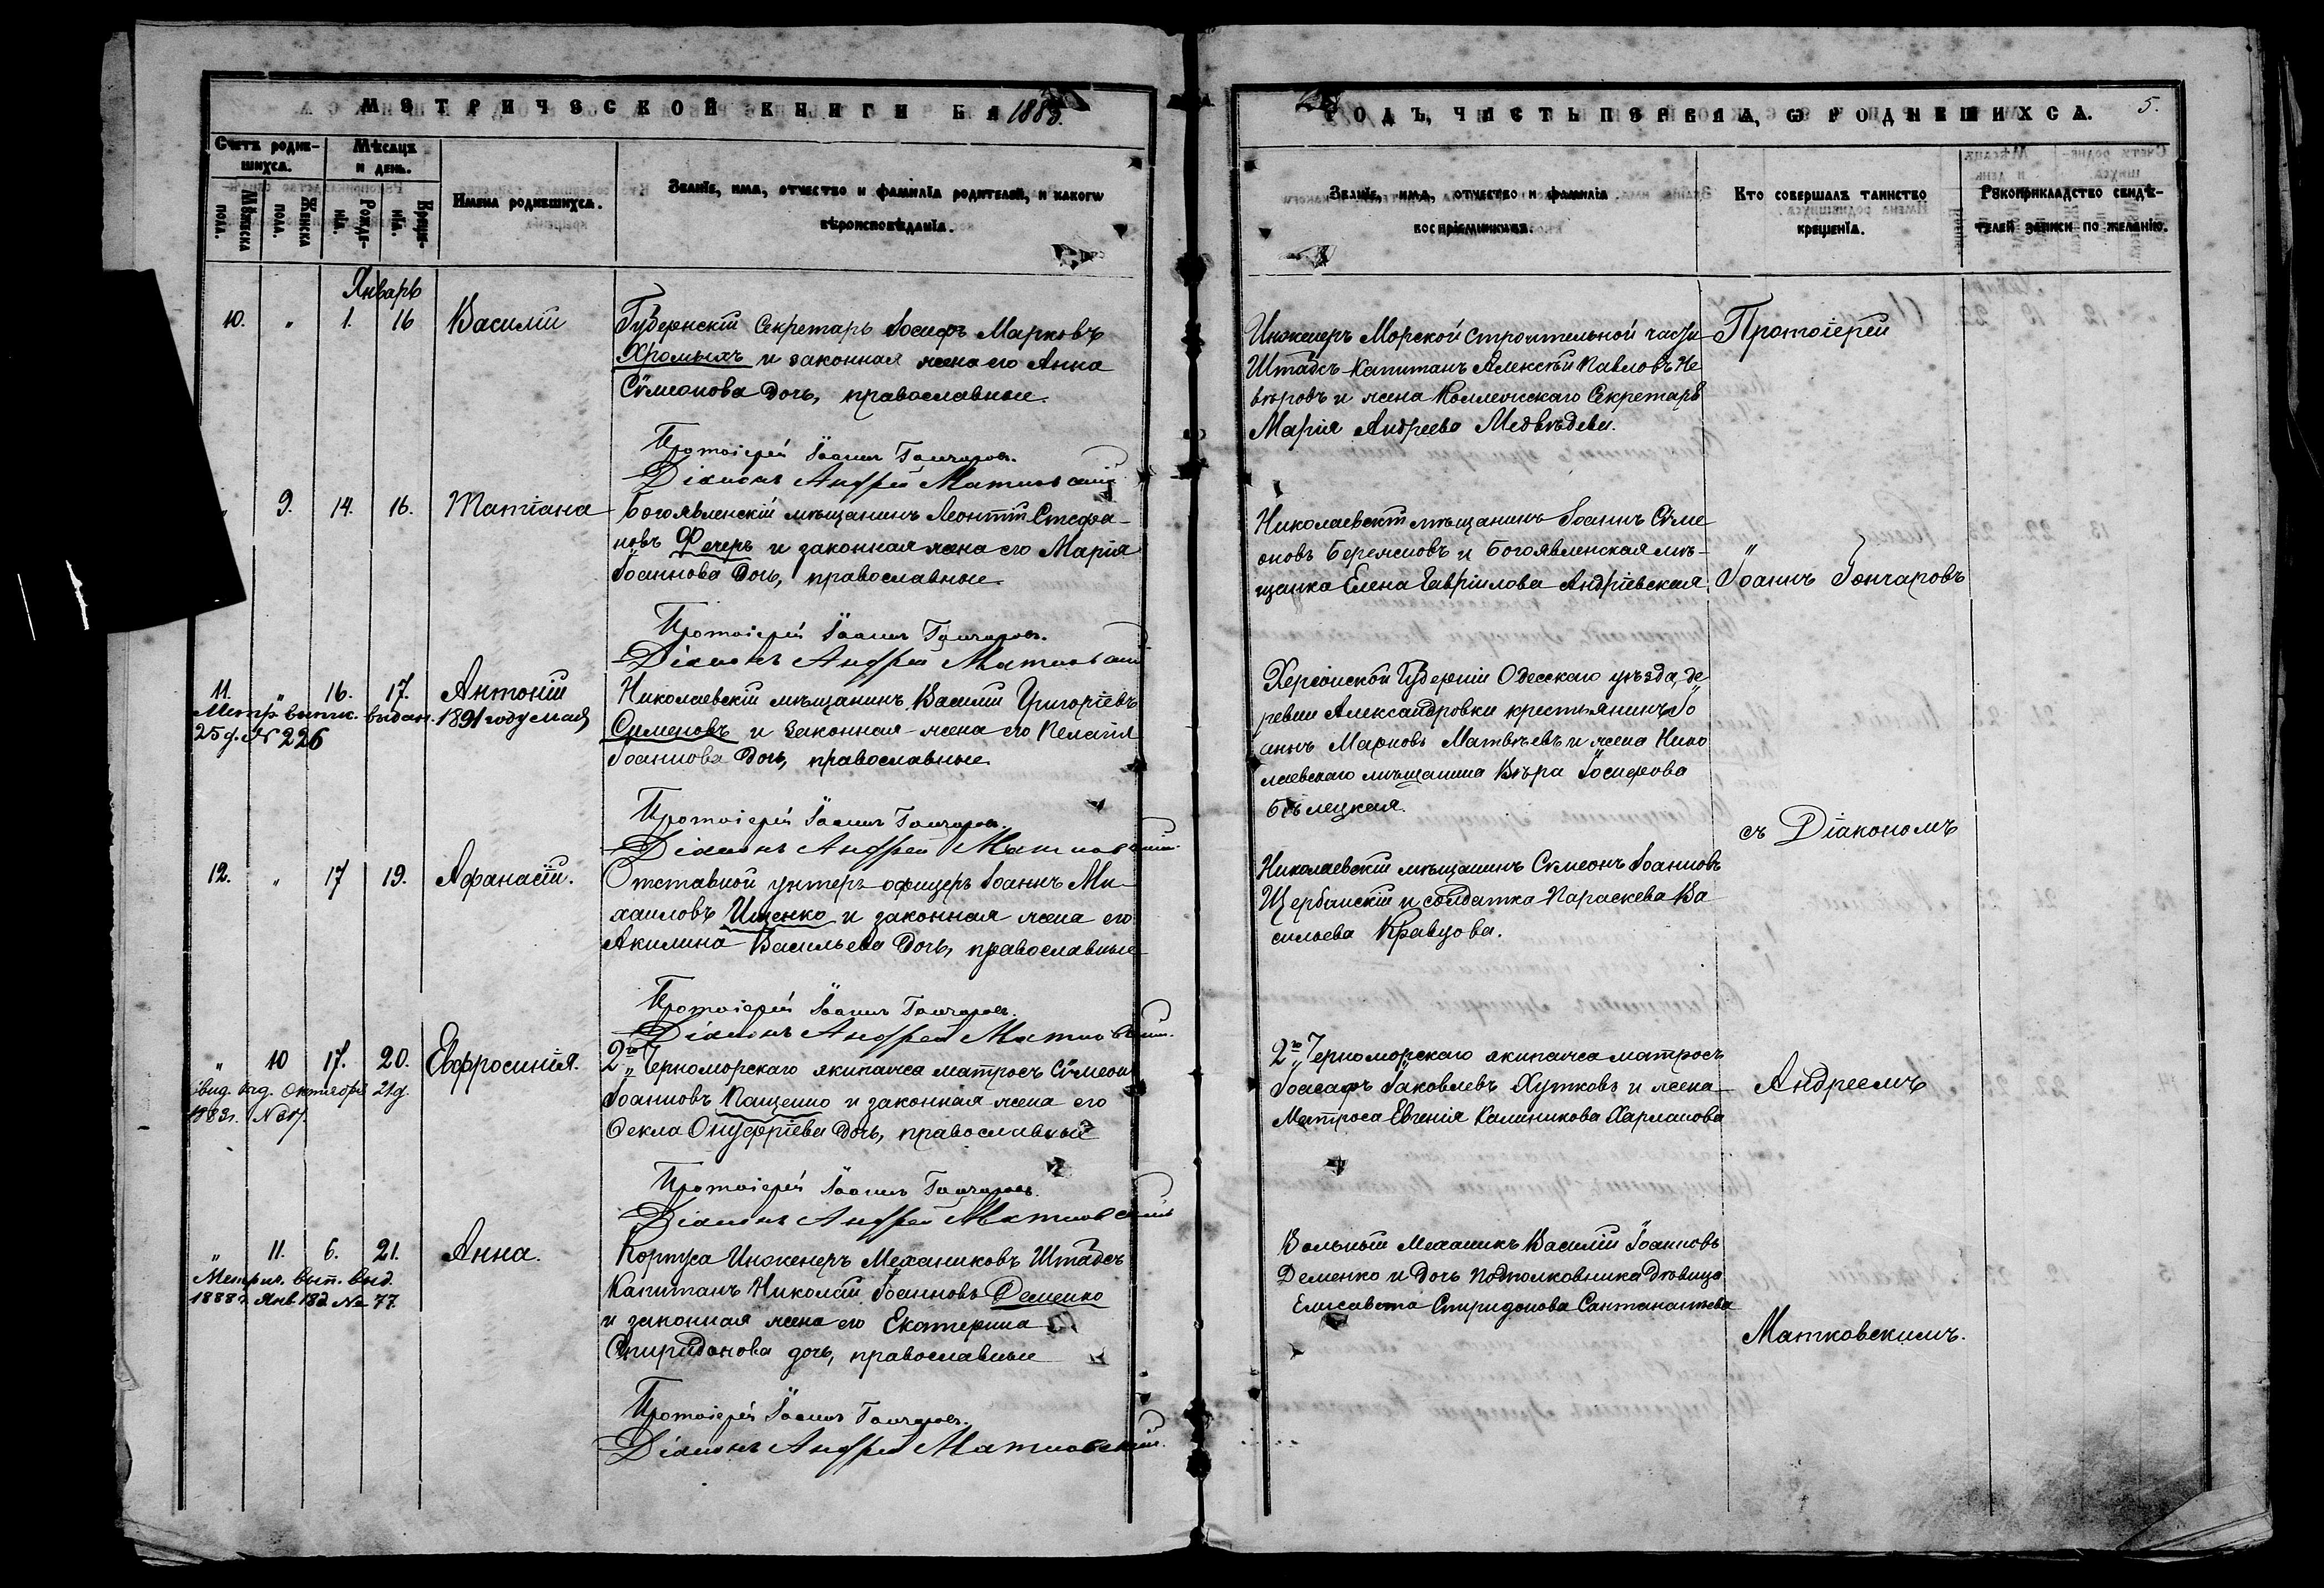 МЕТРИЧЕСКОЙ КНИГИ НА 1883
Счетъ родив-
шихся.
Мѣсяцъ
и день.
Мужеска
пола.
Женска
пола.
Рожде-
нія.
Креще-
нія.
Имена родившихся.
Званіе, имя, отчество и фамилія родителей, и какогѡ
вѣроисповѣданія.
Январь
10. " 1. 16 Василій
Губернскій Секретарь Іосифъ Марковъ
Хромыхъ и законная жена его Анна
Сѵмеонова дочь, православные.
Протоіерей Іоаннъ Гончаровъ.
Діаконъ Андрей Матковскій
" 9. 14. 16. Татіана
Богоявленскій мѣщанинъ Леонтій Стефа-
новъ Фечеръ и законная жена его Марія
Іоаннова дочь, православные
Протоіерей Іоаннъ Гончаровъ.
Діаконъ Андрей Матковскій
11. " 16. 17. Антоній
Метр. выпис. выдан. 1891 году мая
25 д. № 226
Николаевскій мѣщанинъ Василій Григоріевъ
Сименовъ и законная жена его Пелагія
Іоаннова дочь, православные
Протоіерей Іоаннъ Гончаровъ.
Діаконъ Андрей Матковскій
12. " 17 19. Афанасій.
Отставной унтеръ-офицеръ Іоаннъ Ми-
хаиловъ Ищенко и законная жена его
Акилина Васильева дочь, православные
Протоіерей Іоаннъ Гончаровъ.
Діаконъ Андрей Матковскій.
" 10 17. 20. Евфросинія.
Свид. выд. Октября 21 д.
2го Черноморскаго экипажа матросъ Сѵмеонъ
Іоанновъ Пащенко и законная жена его
Ѳекла Онуфріева дочь, православные
Протоіерей Іоаннъ Гончаровъ.
Діаконъ Андрей Матковскій
" 11. 6. 21. Анна.
Метрич. вып. выд.
1888 г. Янв. 18 д. № 77.
Корпуса Инженеръ Механиковъ Штабсъ
Капитанъ Николай Іоанновъ Деменко
и законная жена его Екатерина
Спиридонова дочь, православные
Протоіерей Іоаннъ Гончаровъ.
Діаконъ Андрей Матковскій.
ГОДЪ, ЧАСТЬ ПЕРВАЯ, Ѡ РОДИВШИХСЯ. 5.
Званіе, имя, отчество и фамилія
воспріемниковъ.
Кто совершалъ таинство
крещенія.
Рукоприкладство свидѣ-
телей записи по желанію.
Инженеръ Морской строительной части
Штабсъ-Капитанъ Алексѣй Павловъ Не
вѣровъ и жена Коллежскаго Секретаря
Марія Андреева Медвѣдева.
Протоіерей
Николаевскій мѣщанинъ Іоаннъ Сѵме
оновъ Березновъ и Богоявленская мѣ-
щанка Елена Гавріилова Андріевская
"
Іоаннъ Гончаровъ
Херсонской Губерніи Одесскаго уѣзда, де
ревни Александровки крестьянинъ Іо
аннъ Марковъ Матвѣевъ и жена Нико
лаевскаго мѣщанина Вѣра Іосифова
Бѣлецкая.
съ Діакономъ
Николаевскій мѣщанинъ Сѵмеонъ Іоанновъ
Щербанскій и солдатка Параскева Ва
сильева Кравцова.
2го Черноморскаго экипажа матросъ
Іоасафъ Іаковлевъ Хутковъ и жена
Матроса Евгенія Калиникова Харламова
Андреемъ
Вольный Механикъ Василій Іоанновъ
Деменко и дочь Подполковника Дѣвица
Елисавета Спиридонова Сантанаптева
Матковскимъ.